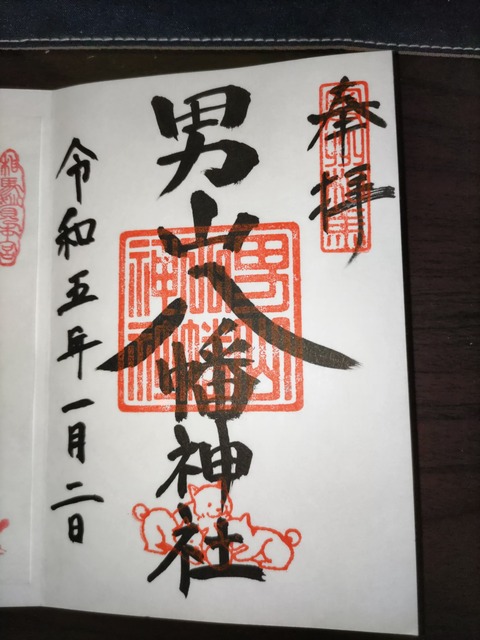 奉拝
男山八幡神社
男山
八幡
神社
令和五年一月二日